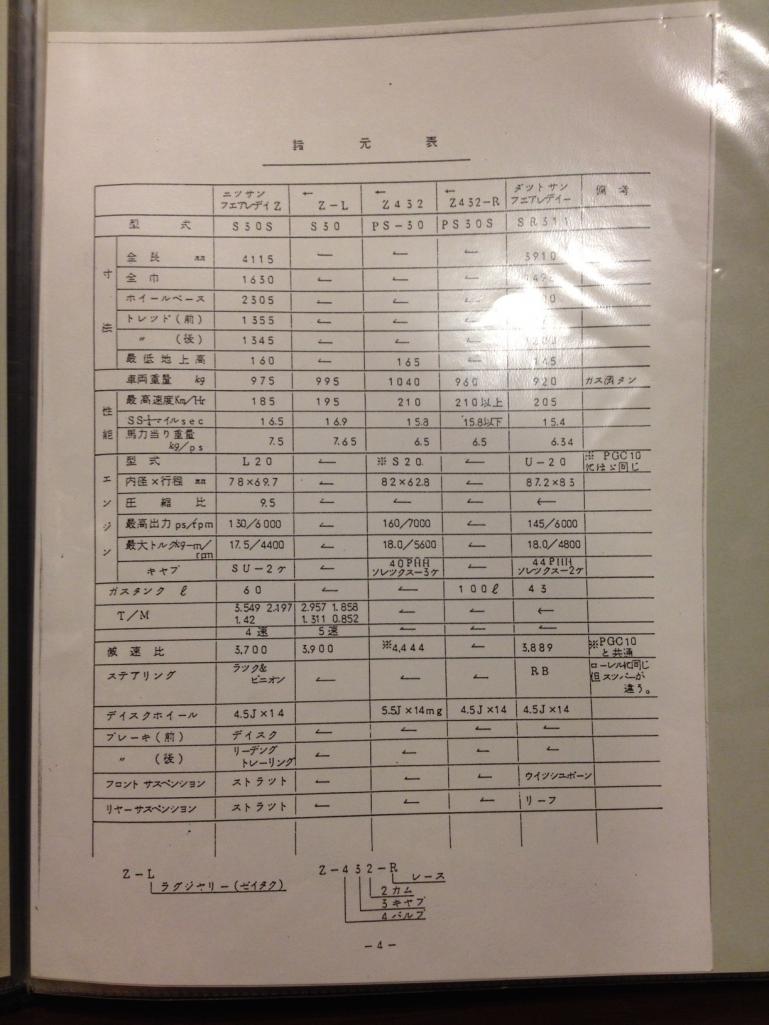 諸元表
ニツサン フエアレデイZ ← Z-L ← Z432 ← Z432-R ダツトサン フエアレデイー 備考
型式 S30S S30 PS-30 PS30S SR311
寸法
全長 mm 4115 ← ← ← 3910
全巾 1630 ← ← ←
ホイールベース 2305 ← ← ←
トレッド(前) 1355 ← ← ←
〃 (後) 1345 ← ← ←
最低地上高 160 ← 165 ← 145
車両重量 kg 975 995 1040 960 920 ガス満タン
性能
最高速度Km/Hr 185 195 210 210以上 205
SS¼マイルsec 16.5 16.9 15.8 15.8以下 15.4
馬力当り重量 kg/ps 7.5 7.65 6.5 6.5 6.34
エンジン
型式 L20 ← ※S20 ← U-20 ※ PGC10にほゞ同じ
内径×行程 mm 78×69.7 ← 82×62.8 ← 87.2×83
圧縮比 9.5 ← ← ← ←
最高出力ps/rpm 130/6000 ← 160/7000 ← 145/6000
最大トルクkg-m/rpm 17.5/4400 ← 18.0/5600 ← 18.0/4800
キャブ SU-2ケ ← 40PHH ソレツクスー3ケ ← 44PHH ソレツクスー2ケ
ガスタンク ℓ 60 ← ← 100ℓ 43
T/M 3.549 2.197 2.957 1.858 ← ← ←
1.42 1.311 0.852
4速 5速 ← ← ←
減速比 3,700 3,900 ※4,444 ← 3,889 ※PGC10と共通
ステアリング ラック&ピニオン ← ← ← RB ローレルに同じ
但スツパーが
違う。
デイスクホイール 4.5J×14 5.5J×14mg 4.5J×14 4.5J×14
ブレーキ(前) デイスク ← ← ← ←
〃 (後) リーデング トレーリング ← ← ← ←
フロントサスペンション ストラット ← ← ← ウイツシユボーン
リヤーサスペンション ストラット ← ← ← リーフ
Z-L
ラグジヤリー(ゼイタク)
Z-432-R
レース
2カム
3キャブ
4バルブ
-4-